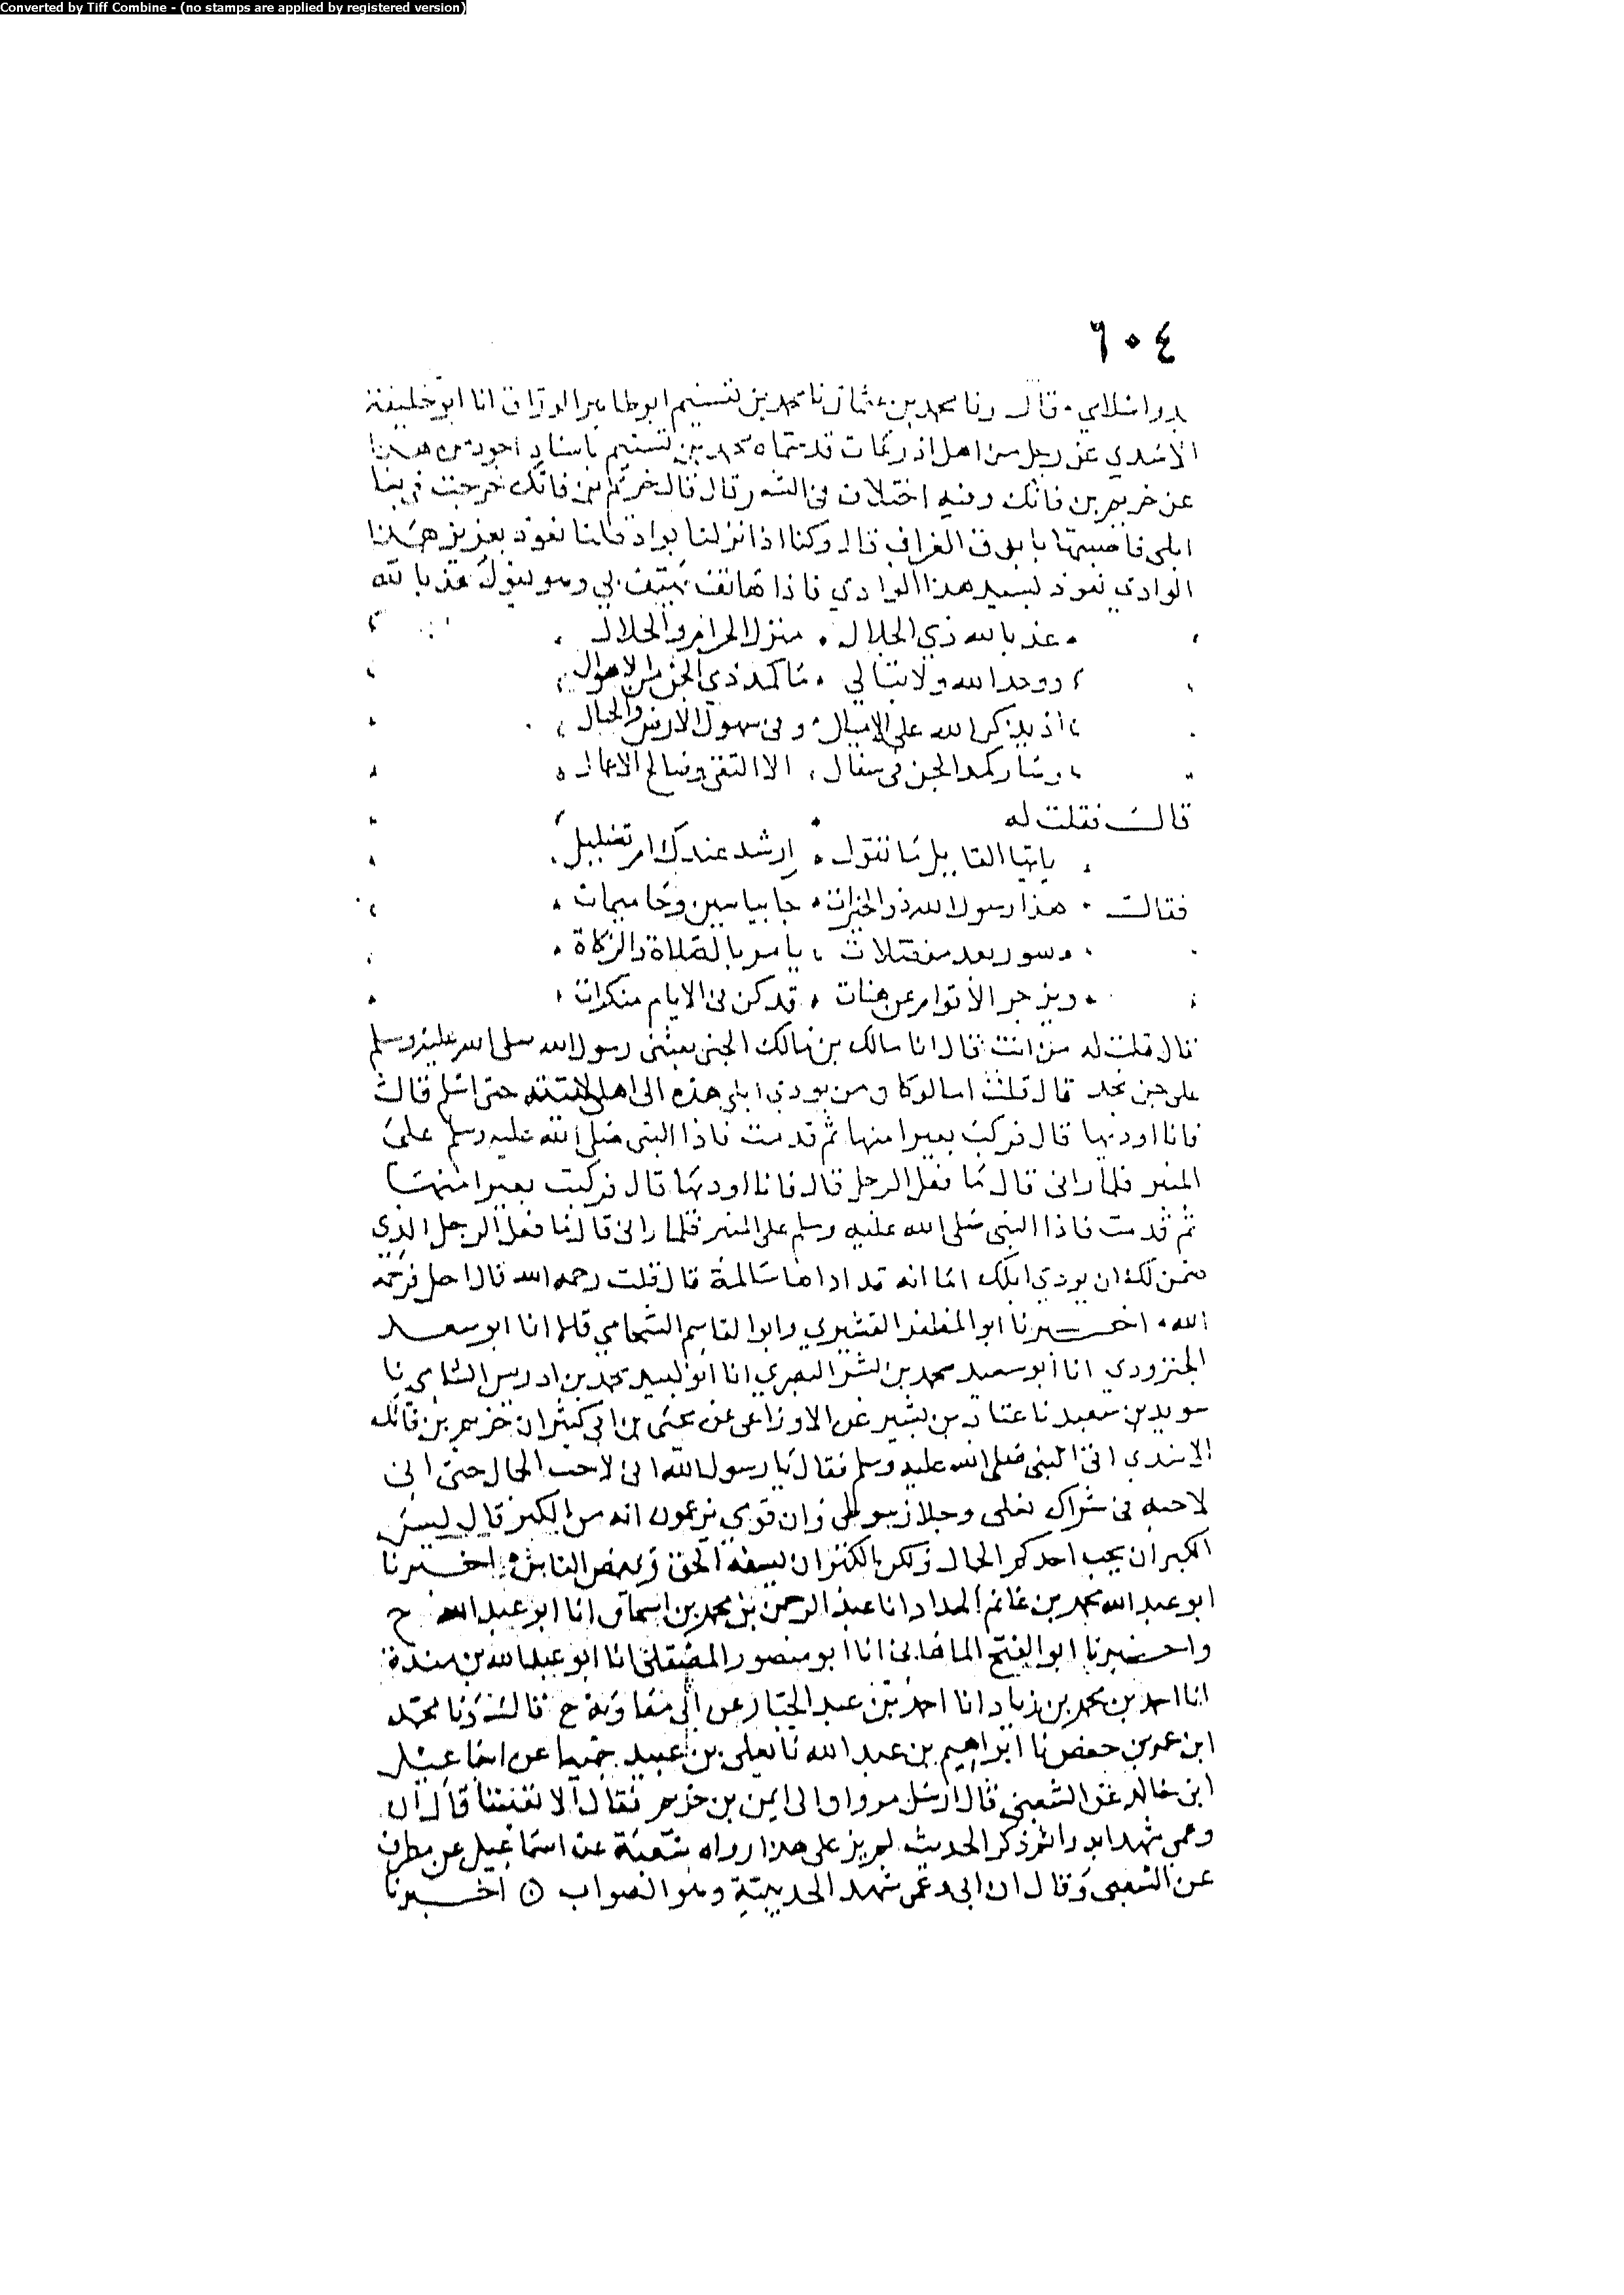 Converted by Tiff Combine - (no stamps are applied by registered version)
٦٠٤
بدو اسلامي قال ونا محمد بن عثمان نا محمد بن تسنيم ابو طاهر الوراق انا ابو خليفة
الاسدي عن رجل من اهل اذرعات قد سماه محمد بن تسنيم باسناد اجود من هذا
عن خريم بن فاتك وفيه اختلاف في الشعر قال قال خريم بن فاتك خرجت في بغا
ابلي فاصبتها بابرق العزاف قال وكنا اذا نزلنا بواد قلنا نعوذ بعزيز هذا
الوادي نعوذ بسيد هذا الوادي فاذا هاتف يهتف بي وهو يقول عذ بالله
عذ بالله ذي الجلال منزل الحرام والحلال
ووحد الله ولا تبالي ما كيد ذي الجن من الاهوال
اذ يذكر الله على الاميال وفي سهول الارض والجبال
وصار كيد الجن في سفال الا التقى وصالح الاعمال
قال فقلت له
يا ايها القايل ما تقول ارشد عندك ام تضليل
فقال هذا رسول الله ذو الخيرات جا بياسين وحاميمات
وسور بعد مفصلات يامر بالصلاة والزكاة
ويزجر الاقوام عن هنات قد كن في الايام منكرات
قال قلت له من انت قال انا مالك بن مالك الجني بعثني رسول الله صلى الله عليه وسلم
على جن نجد قال قلت اما لو كان من يودي ابلي هذه الى اهلي لاتيته حتى اسلم قال
فانا اوديها قال فركبت بعيرا منها ثم قدمت فاذا النبي صلى الله عليه وسلم على
المنبر فلما راني قال ما فعل الرجل قال فانا اوديها قال فركبت بعيرا منها
ثم قدمت فاذا النبي صلى الله عليه وسلم على المنبر فلما راني قال ما فعل الرجل الذي
ضمن لك ان يودي ابلك اما انه قد اداها سالمة قال قلت رحمه الله قال اجل فرحمه
الله اخبرنا ابو المظفر القشيري وابو القاسم الشحامي قالا انا ابو سعد
الجنزرودي انا ابو سعيد محمد بن بشر البصري انا ابو لبيد محمد بن ادريس الشامي نا
سويد بن سعيد نا عتاب بن بشير عن الاوزاعي عن يحيى بن ابي كثير ان خريم بن فاتك
الاسدي اتى النبي صلى الله عليه وسلم فقال يا رسول الله اني لاحب الجمال حتى اني
لاحبه في شراك نعلي وجلاز سوطي وان قومي يزعمون انه من الكبر قال ليس
الكبر ان يحب احدكم الجمال ولكن الكبر ان يسفه الحق ويغمص الناس اخبرنا
ابو عبد الله محمد بن غانم الحداد انا عبد الرحمن بن محمد بن اسحاق انا ابو عبد الله ح
واخبرنا ابو الفتح الماهاني انا ابو منصور المصقلي انا ابو عبد الله بن مندة
انا احمد بن محمد بن زياد انا احمد بن عبد الجبار عن ابي معاوية ح قال ونا محمد
ابن عمر بن حفص نا ابراهيم بن عبد الله نا يعلى بن عبيد جميعا عن اسماعيل
ابن خالد عن الشعبي قال ارسل مروان الى ايمن بن خريم فقال الا تقاتل قال ان
وعمي شهد ابدرا ثم ذكر الحديث لم يزد على هذا رواه شعبة عن اسماعيل عن مطرف
عن الشعبي وقال ان ابي وعمي شهدا الحديبية وهو الصواب ۞ اخبرنا